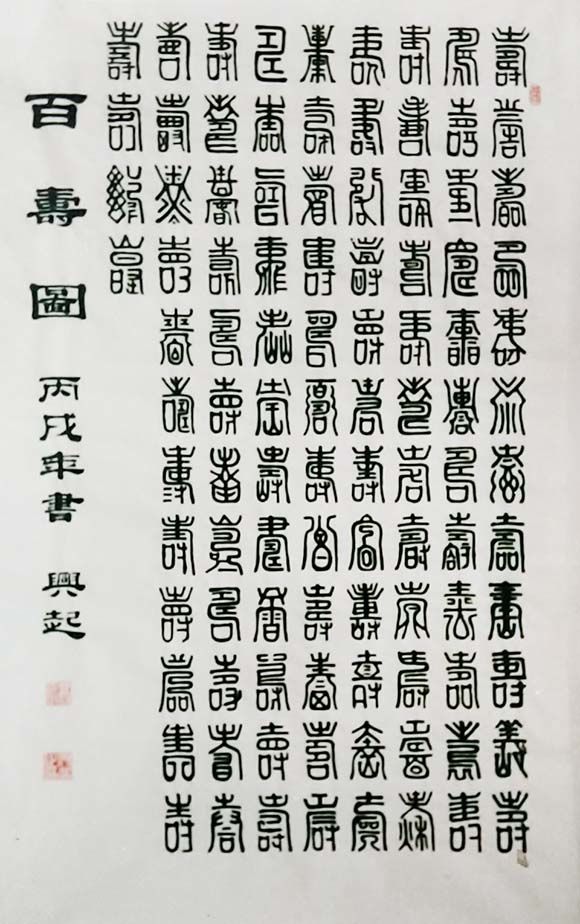 壽壽壽壽壽壽壽壽壽壽壽壽
壽壽壽壽壽壽壽壽壽壽壽壽
壽壽壽壽壽壽壽壽壽壽壽壽
壽壽壽壽壽壽壽壽壽壽壽壽
壽壽壽壽壽壽壽壽壽壽壽壽
壽壽壽壽壽壽壽壽壽壽壽壽
壽壽壽壽壽壽壽壽壽壽壽壽
壽壽壽壽壽壽壽壽壽壽壽壽
壽壽壽壽
百壽圖 丙戌年書 興起